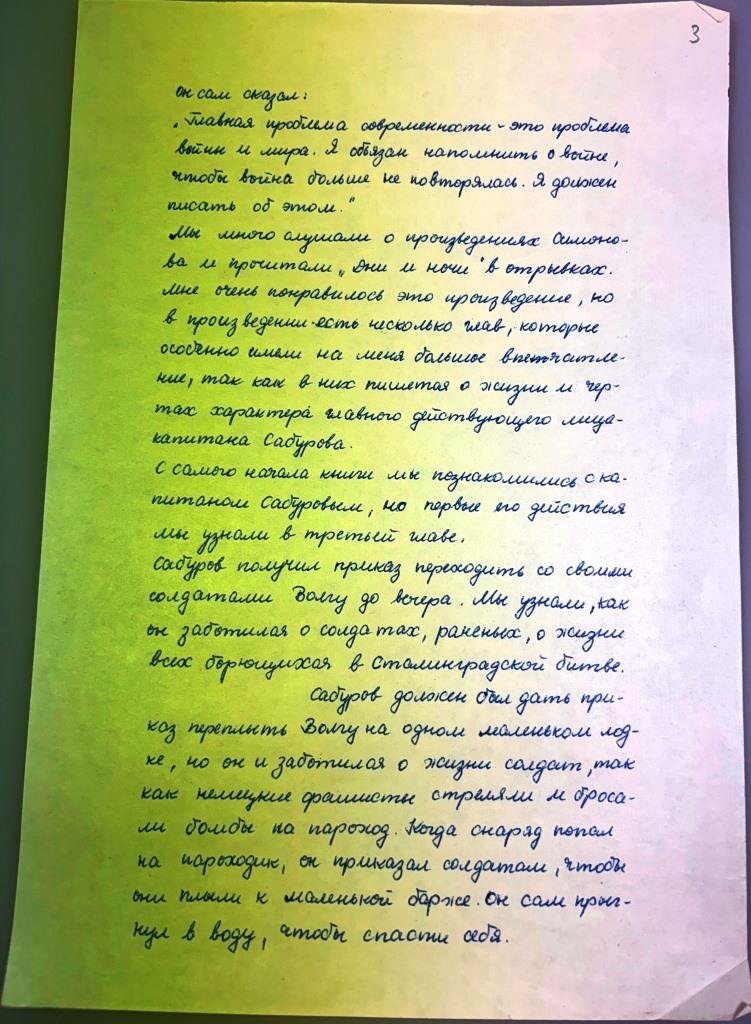 3
он сам сказал:
„Главная проблема современности - это проблема
войны и мира. Я обязан напомнить о войне,
чтобы война больше не повторялась. Я должен
писать об этом."
Мы много слушали о произведениях Симоно-
ва и прочитали „Дни и ночи" в отрывках.
Мне очень понравилось это произведение, но
в произведении есть несколько глав, которые
особенно имели на меня большое впечатле-
ние, так как в них пишется о жизни и чер-
тах характера главного действующего лица-
капитана Сабурова.
С самого начала книги мы познакомились с ка-
питаном Сабуровым, но первые его действия
мы узнали в третьей главе.
Сабуров получил приказ переходить со своими
солдатами Волгу до вечера. Мы узнали, как
он заботился о солдатах, раненых, о жизни
всех борющихся в Сталинградской битве.
Сабуров должен был дать при-
каз переплыть Волгу на одном маленьком лод-
ке, но он и заботился о жизни солдат, так
как немецкие фашисты стреляли и броса-
ли бомбы на пароход. Когда снаряд попал
на пароходик, он приказал солдатам, чтобы
они плыли к маленькой барже. Он сам прыг-
нул в воду, чтобы спасти себя.